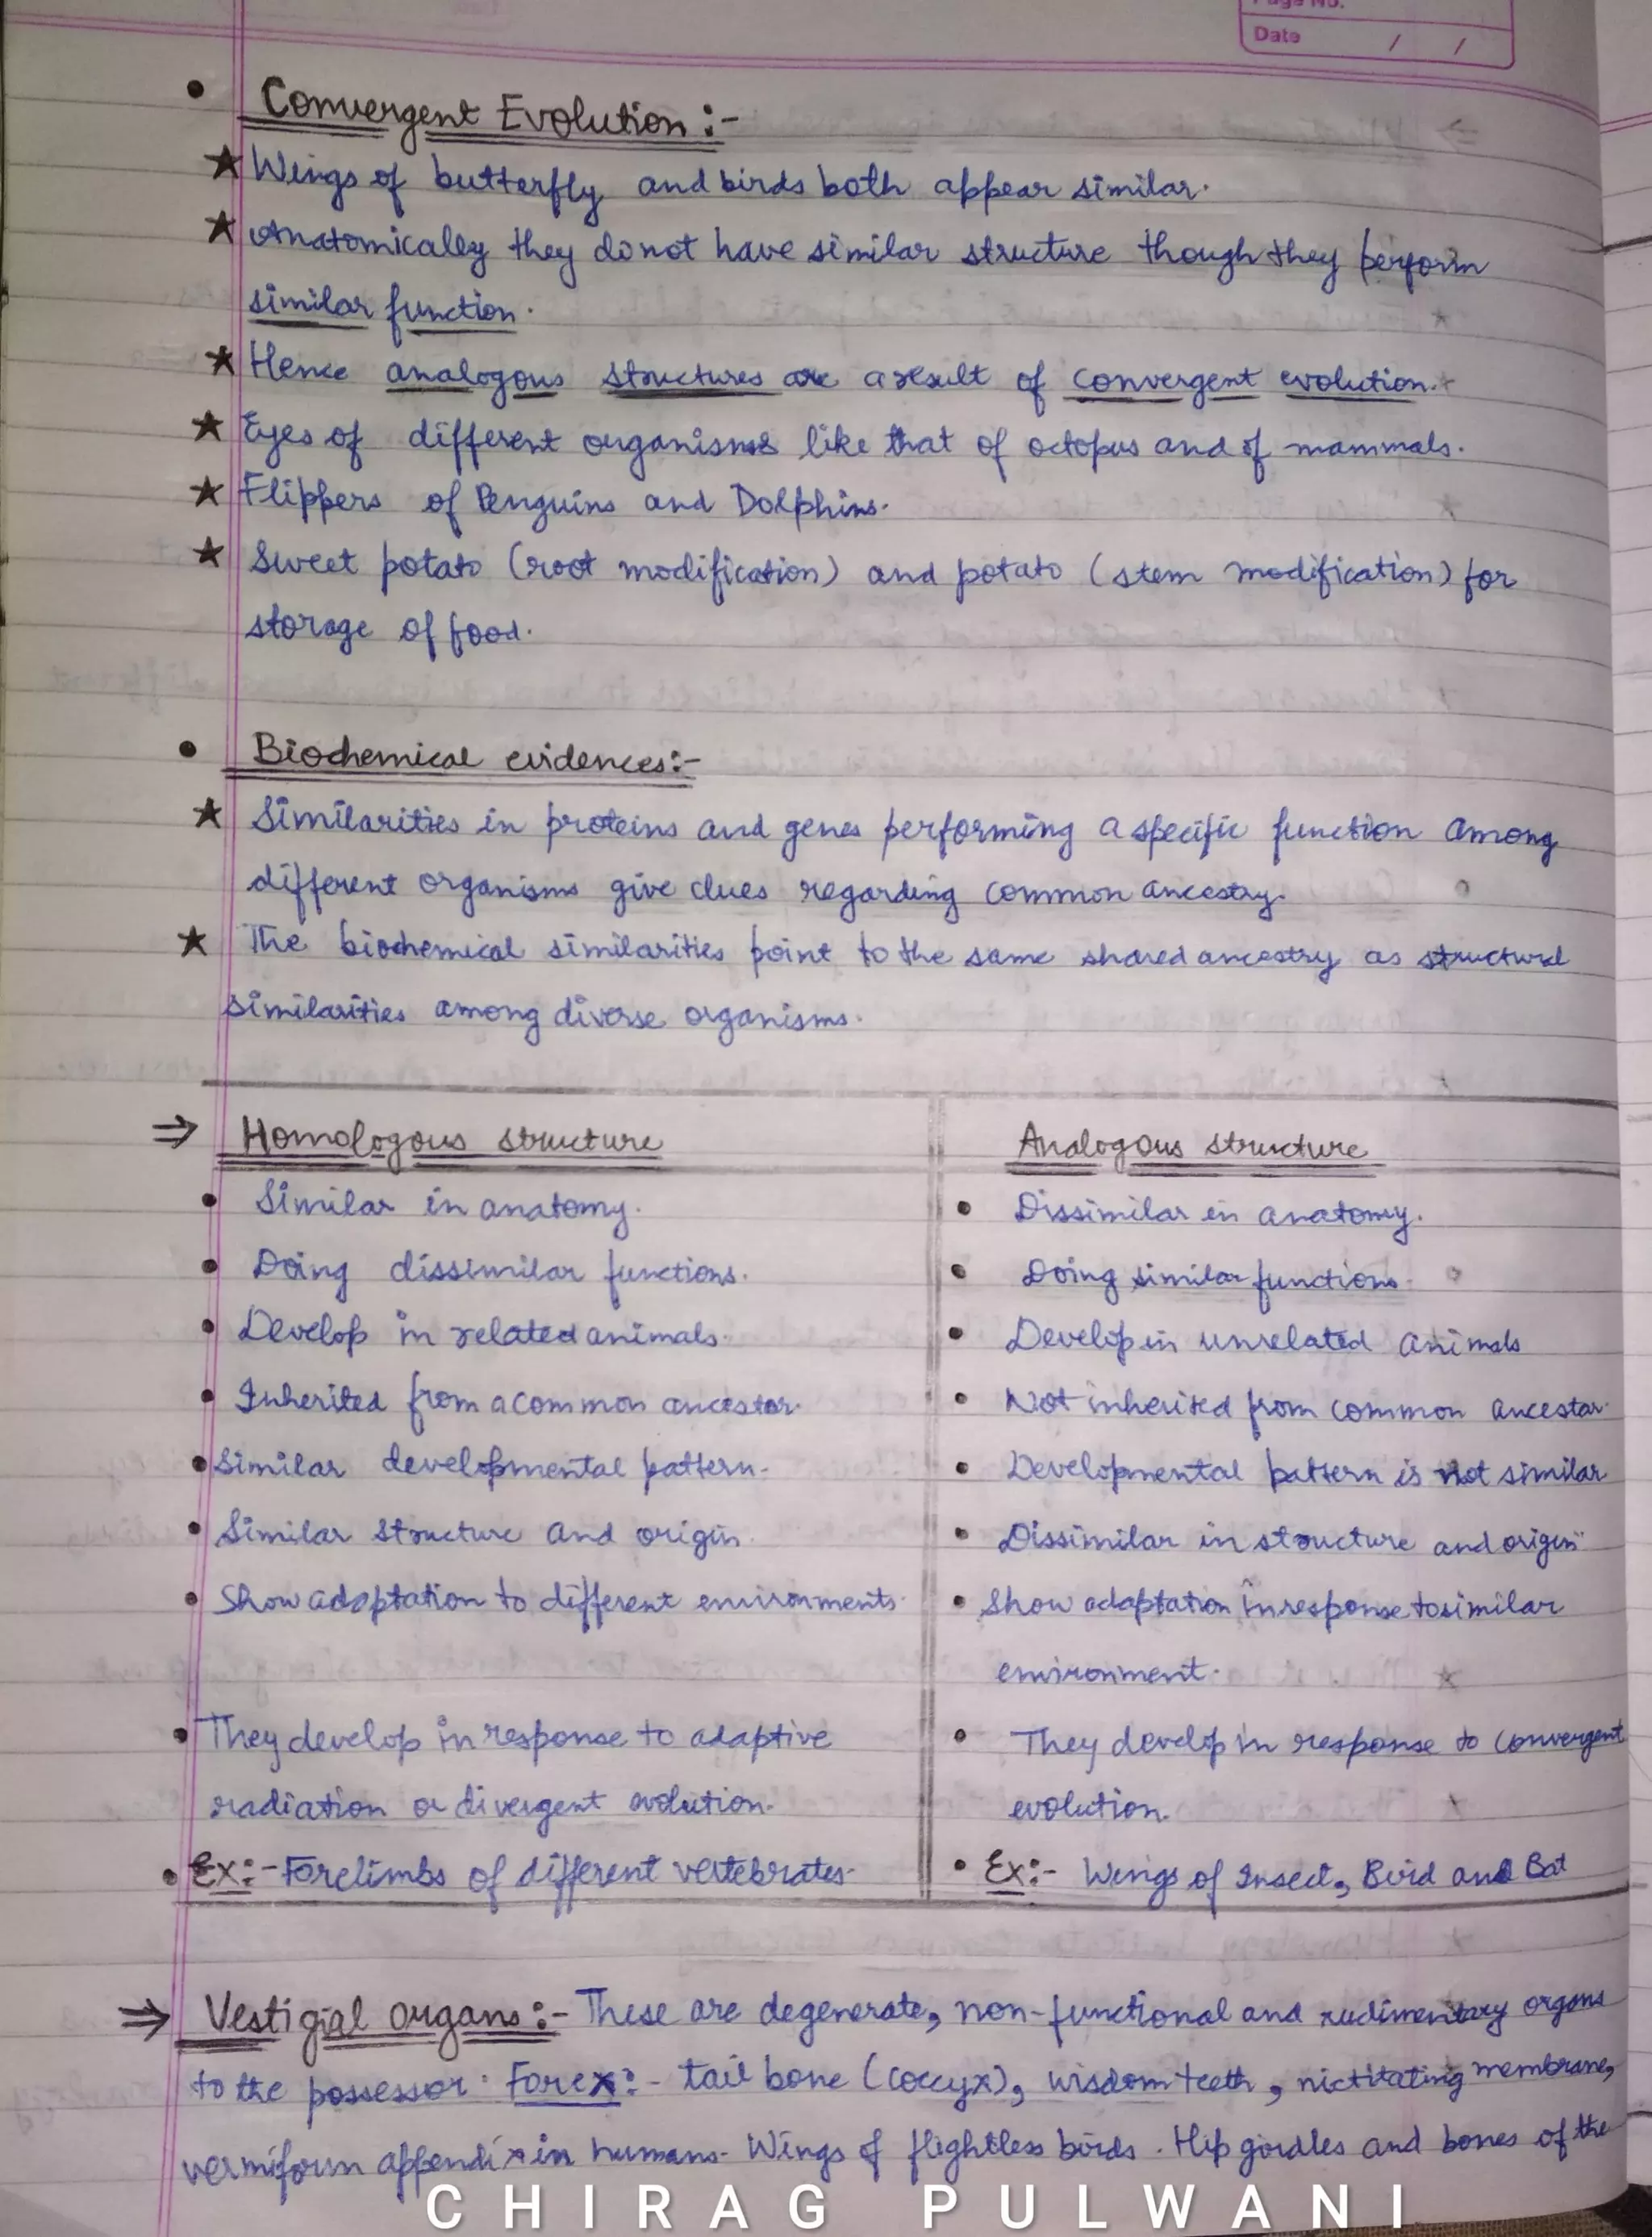 Page No.
Date / /
• Convergent Evolution :-
★ Wings of butterfly and birds both appear similar.
★ Anatomically they do not have similar structure though they perform
similar function.
★ Hence analogous structures are a result of convergent evolution.
★ Eyes of different organisms like that of octopus and of mammals.
★ Flippers of Penguins and Dolphins.
★ Sweet potato (root modification) and potato (stem modification) for
storage of food.
• Biochemical evidences:-
★ Similarities in proteins and genes performing a specific function among
different organisms give clues regarding common ancestry.
★ The biochemical similarities point to the same shared ancestry as structural
similarities among diverse organisms.
⇒ Homologous structure
• Similar in anatomy.
• Doing dissimilar functions.
• Develop in related animals.
• Inherited from a common ancestor.
• Similar developmental pattern.
• Similar structure and origin.
• Show adaptation to different environments.
• They develop in response to adaptive
radiation or divergent evolution.
• Ex:- Forelimbs of different vertebrates.
Analogous structure
• Dissimilar in anatomy.
• Doing similar functions.
• Develop in unrelated animals
• Not inherited from common ancestor.
• Developmental pattern is not similar
• Dissimilar in structure and origin
• Show adaptation in response to similar
environment.
• They develop in response to convergent
evolution.
• Ex:- Wings of Insect, Bird and Bat
⇒ Vestigial organs :- These are degenerate, non-functional and rudimentary organs
to the possessor. For ex:- tail bone (coccyx), wisdom teeth, nictitating membrane,
vermiform appendix in humans. Wings of flightless birds. Hip girdles and bones of the
CHIRAG PULWANI